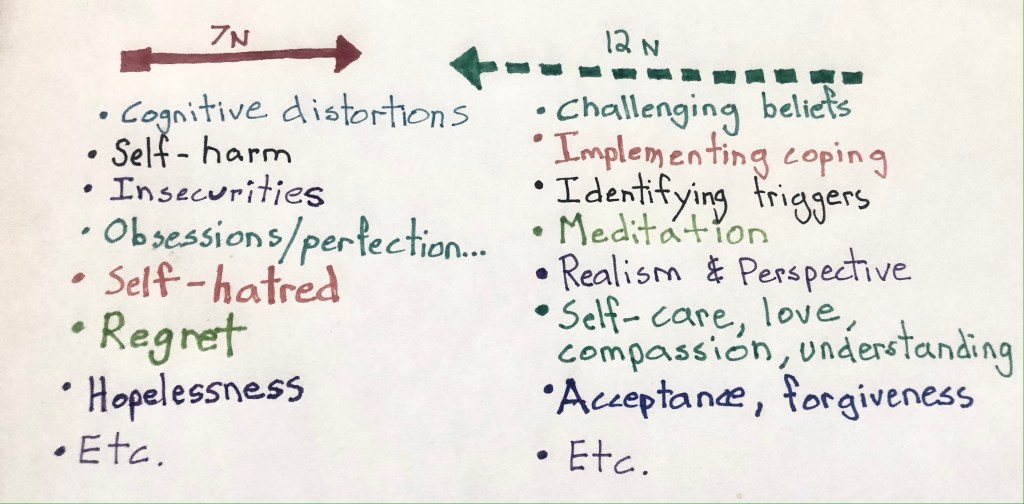 7N
12 N
• Cognitive distortions
• Self-harm
• Insecurities
• Obsessions/perfection...
• Self-hatred
• Regret
• Hopelessness
• Etc.
• Challenging beliefs
• Implementing coping
• Identifying triggers
• Meditation
• Realism & Perspective
• Self-care, love,
compassion, understanding
• Acceptance, forgiveness
• Etc.